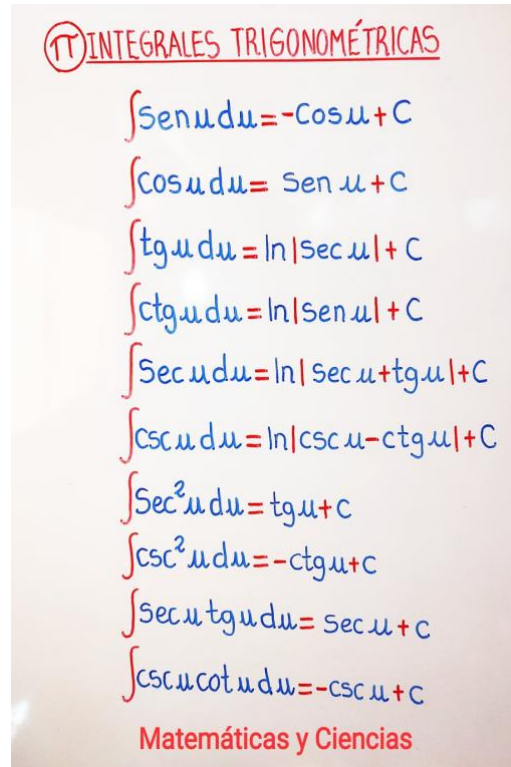 π INTEGRALES TRIGONOMÉTRICAS
∫Sen u du = -Cos u + C
∫cos u du = Sen u + C
∫tg u du = ln|Sec u| + C
∫ctg u du = ln|Sen u| + C
∫Sec u du = ln|Sec u + tg u| + C
∫csc u du = ln|csc u - ctg u| + C
∫Sec² u du = tg u + C
∫csc² u du = -ctg u + C
∫Sec u tg u du = Sec u + C
∫csc u cot u du = -csc u + C
Matemáticas y Ciencias